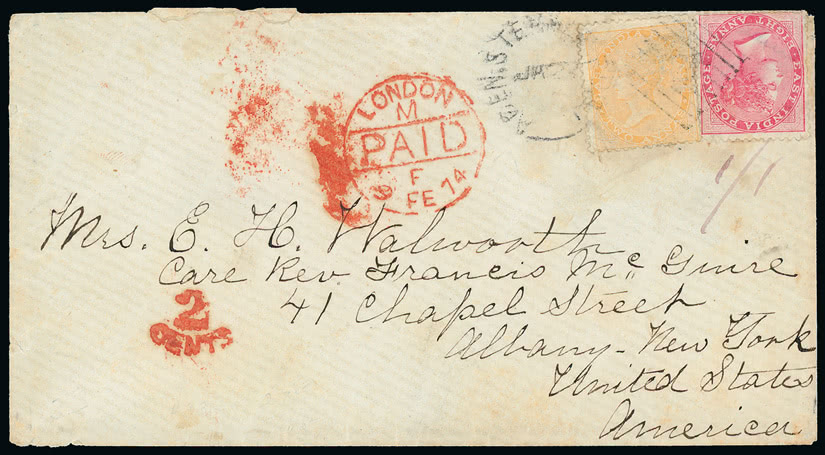 LONDON
M
PAID
9 F
FE 74
EAST INDIA POSTAGE
EIGHT ANNAS
1/1
Mrs. E. H. Walworth
Care Rev. Francis Mc. Guire
41 Chapel Street
Albany - New York
United States
America
2
CENTS